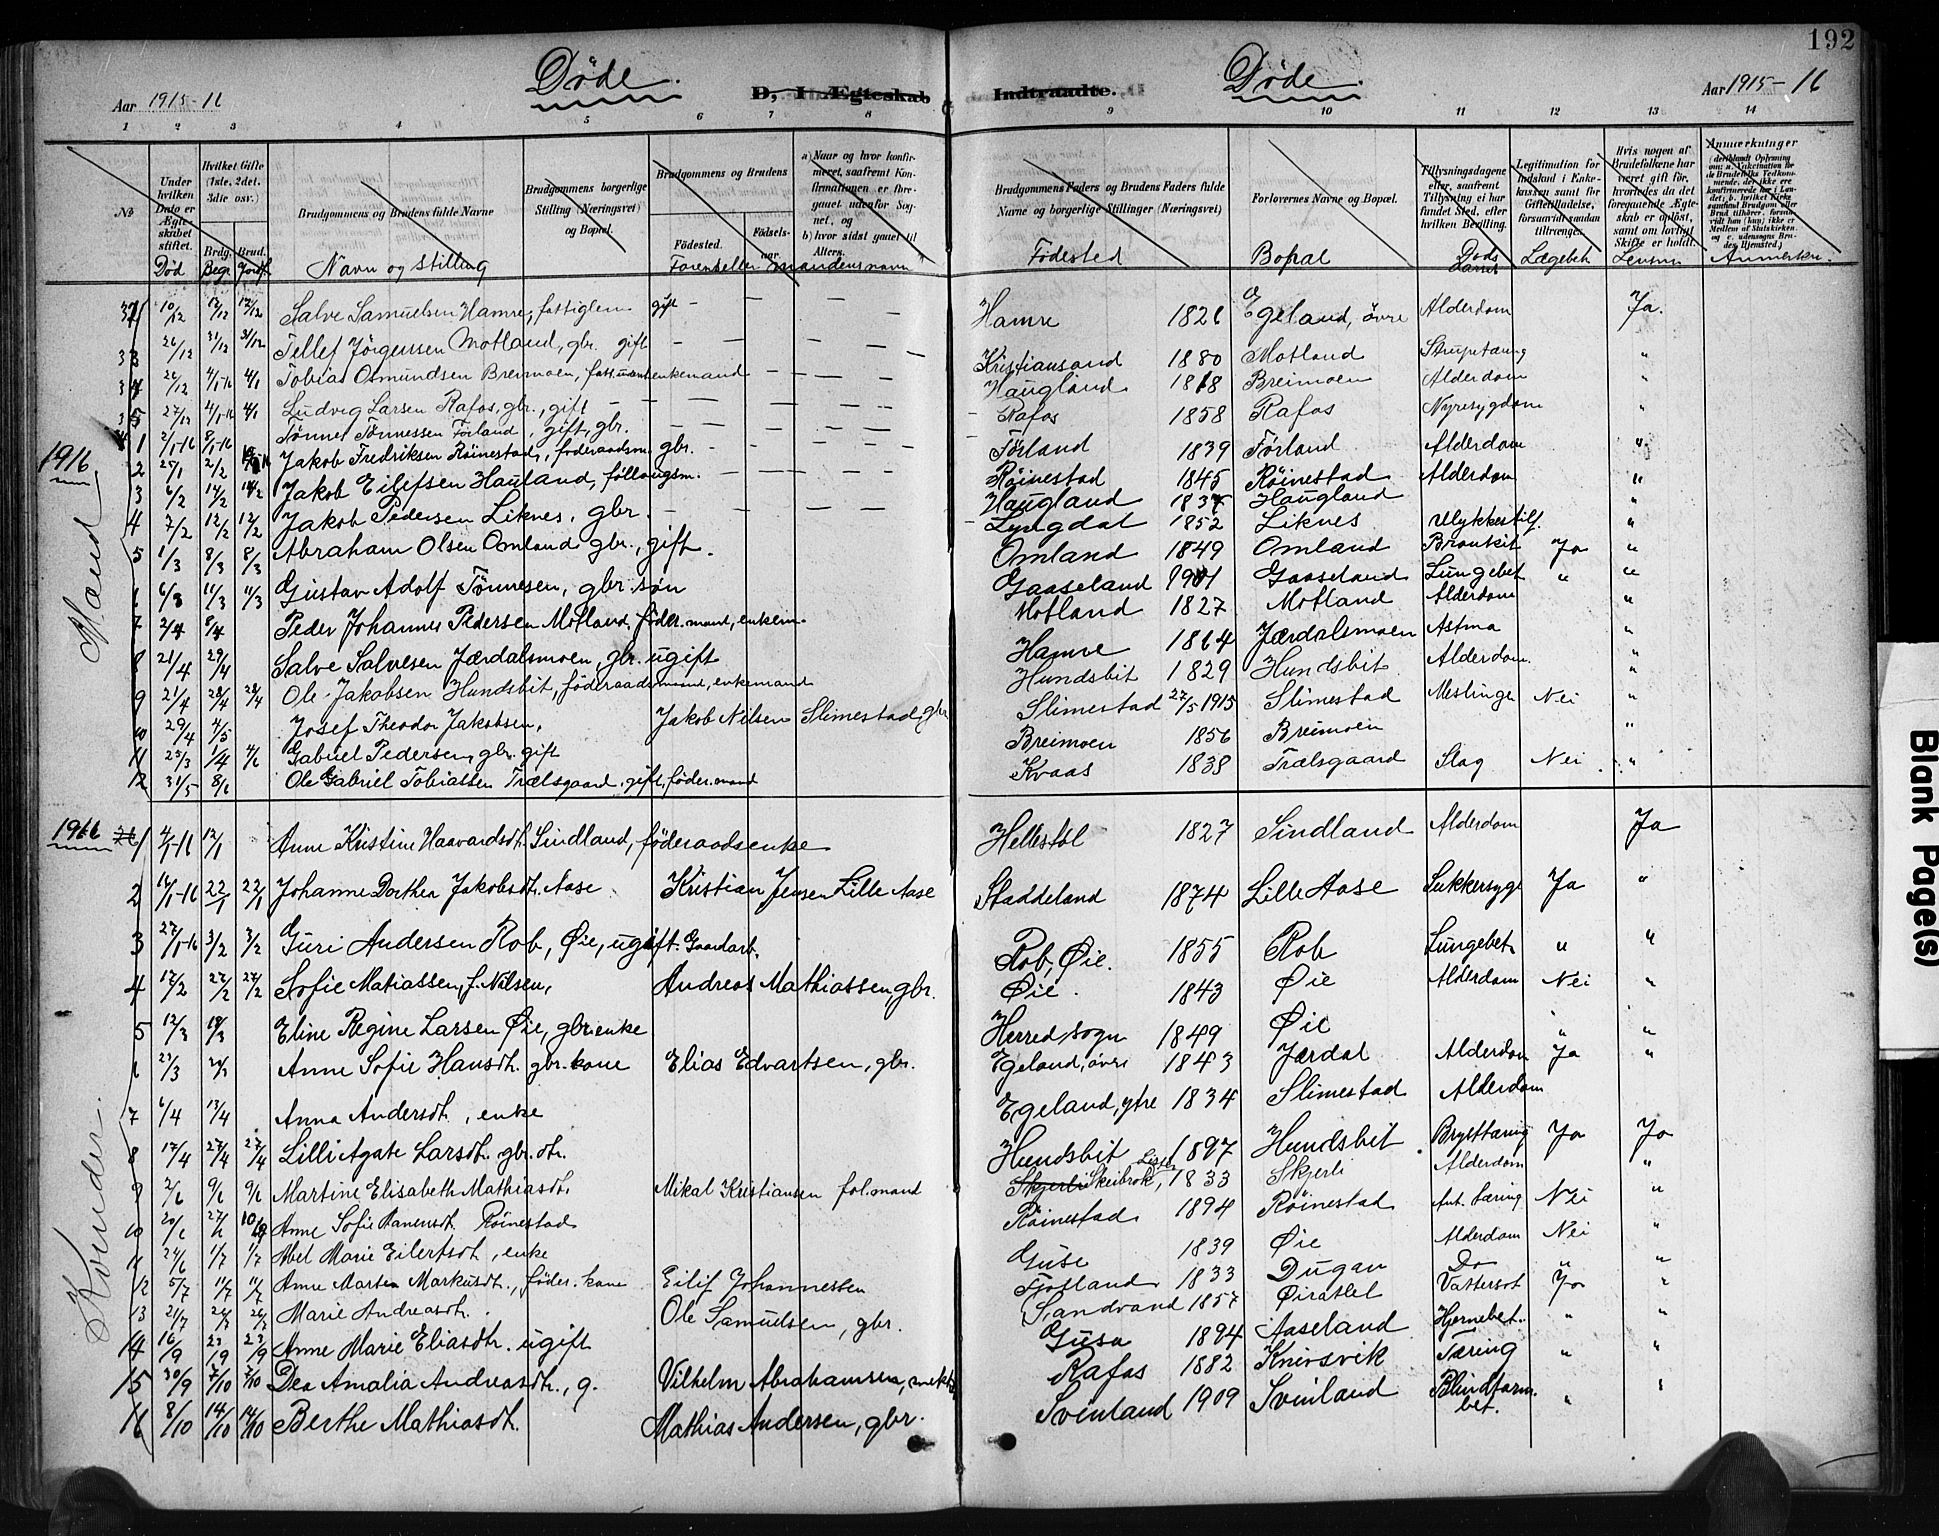 192
Døde. Døde.
Aar 1915-16 D, I Ægteskab Indtraadte. Aar 1915-16
1 2 3 4 5 6 7 8 9 10 11 12 13 14
No
Under hvilken Dato er Ægteskabet stiftet.
Hvilket Gifte (1ste, 2det, 3die osv.)
Brdg. Brud.
Brudgommens og Brudens fulde Navne
Brudgommens borgerlige Stilling (Næringsvei) og Bopæl.
Brudgommens og Brudens
Fødested. Fødsels-aar.
a) Naar og hvor konfirmeret, saafremt Konfirmationen er foregaaet udenfor Sognet, og
b) hvor sidst gaaet til Alters.
Brudgommens Faders og Brudens Faders fulde Navne og borgerlige Stillinger (Næringsvei)
Forlovernes Navne og Bopæl.
Tillysningsdagene eller, saafremt Tillysning ei har fundet Sted, efter hvilken Bevilling.
Legitimation for Indskud i Enkekassen samt for Giftetilladelse, forsaavidt saadan tiltrænges.
Hvis nogen af Brudefolkene har været gift før, hvorledes da det foregaaende Ægteskab er opløst, samt om lovligt Skifte er holdt.
Anmærkninger
Død Begr. Jordf. Navn og stilling Foreneller mandens navn Fødested Bopæl Døds aarsak Lægebeh Lensm Anmerkn.
32 10/12 17/12 17/12 Salve Samuelsen Hamre, fattiglem gift — Hamre 1826 Egeland, øvre Alderdom Ja.
33 26/12 31/12 31/12 Tellef Jörgensen Motland, gbr. gift — Kristiansand 1880 Motland Strupetæring "
34 26/12 4/1-16 4/1 Tobias Osmundsen Breimoen, enkemand — Haugland 1818 Breimoen Alderdom "
35 27/12 4/1-16 4/1 Ludvig Larsen Rafos, gbr., gift — Rafos 1858 Rafos Nyresygdom "
1916
Mænd
1 2/1-16 8/1-16 Tönnes Tönnessen Förland, gift, gbr. — Förland 1839 Förland Alderdom "
2 25/1 2/2 Jakob Fredriksen Röinestad, foderaadsm. gbr. — Röinestad 1845 Röinestad Alderdom "
3 6/2 14/2 14/2 Jakob Eilefsen Hauland, föllaugsm. — Haugland 1837 Haugland "
4 7/2 12/2 12/2 Jakob Pedersen Liknes, gbr. — Lyngdal 1852 Liknes Ulykkestilf. "
5 1/3 8/3 8/3 Abraham Olsen Omland gbr., gift. Omland 1849 Omland Bronkit Ja "
6 6/3 11/3 11/3 Gustav Adolf Tönnesen, gbr. sön Gaaseland 1901 Gaaseland Lungebet " "
7 2/4 8/4 Peder Johannes Pedersen Motland, föder. mand, enkem. Motland 1827 Motland Alderdom "
8 21/4 29/4 Salve Salvesen Jærdalsmoen, gbr. ugift Hamre 1864 Jærdalsmoen Astma "
9 21/4 28/4 28/4 Ole Jakobsen Hundsbit, föderaadsmand, enkemand Hundsbit 1829 Hundsbit Alderdom. "
10 29/4 4/5 Josef Theodor Jakobsen, Jakob Nilsen Slimestad, gbr Slimestad 27/5 1915 Slimestad Meslinger Nei "
11 25/3 1/4 4/6 Gabriel Pedersen, gbr. gift Breimoen 1856 Breimoen "
12 31/5 8/6 Ole Gabriel Tobiassen Trælsgaard, gift, föder. mand Kvaas 1838 Trælsgaard Slag Nei "
1916
Kvinder.
1 4/1-16 12/1 Anne Kristine Haavardsdt. Sindland, föderaadsenke Hellestöl 1827 Sindland Alderdom Ja
2 16/1-16 22/1 22/1 Johanne Dorthea Jakobsdt. Aase Kristian Jensen Lille Aase Staddeland 1874 Lille Aase Sukkersyge Ja "
3 27/1-16 3/2 3/2 Guri Andersen Rob, Øie, ugift. Gaardarb. Rob, Øie. 1855 Rob Lungebet. " "
4 17/2 27/2 27/2 Sofie Matiassen, f. Nilsen, Andreas Mathiassen, gbr. Øie. 1843 Øie Alderdom Nei "
5 12/3 19/3 Eline Regine Larsen Øie, gbr.enke Herred, sogn 1849 Øie " "
6 23/3 Anne Sofie Hansdt. gbr. kone Elias Edvartsen, gbr. Egeland, øvre 1843 Jærdal Alderdom Ja "
7 6/4 13/4 Anna Andersdt., enke Egeland, ytre 1834 Slimestad Alderdom
8 17/4 27/4 27/4 Lilli Agate Larsdt. gbr. dtr. Hundsbit 1897 Hundsbit Brysttæring Ja Ja
9 2/6 9/6 9/6 Martine Elisabeth Mathiasdt. Mikal Kristiansen fol. mand Skjerli Skeibrok, Lista 1833 Skjerli Alderdom "
10 20/6 27/6 Anne Sofie Hanensdt. Röinestad Röinestad 1894 Röinestad Ant. tæring Nei "
11 24/6 1/7 1/7 Abel Marie Eilertsdt., enke Guse 1839 Øie Alderdom Nei "
12 5/7 11/7 11/7 Anne Marten Markusdt., föder. kone Eilif Johannessen Fjotland 1833 Dugan Do " "
13 21/7 26/7 26/7 Marie Andreasdt. Ole Samuelsen, gbr. Sandvand 1857 Øiraslet Vattersot Ja "
14 16/9 23/9 23/9 Anne Marie Eliasdt. ugift Gusa 1894 Aaseland Hjernebet. " "
15 30/9 7/10 7/10 Dea Amalia Andreasdt., g. Vilhelm Abrahamsen, Rafos 1882 Knivsvik Tæring " "
16 8/10 14/10 14/10 Berthe Mathiasdt. Mathias Andersen, gbr. Svinland 1909 Svinland Blindtarmbet. " "
Blank Page(s)